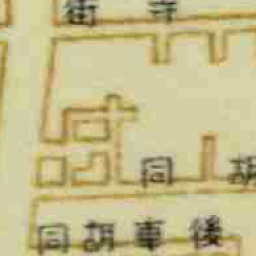 街寺
同胡
同胡車後